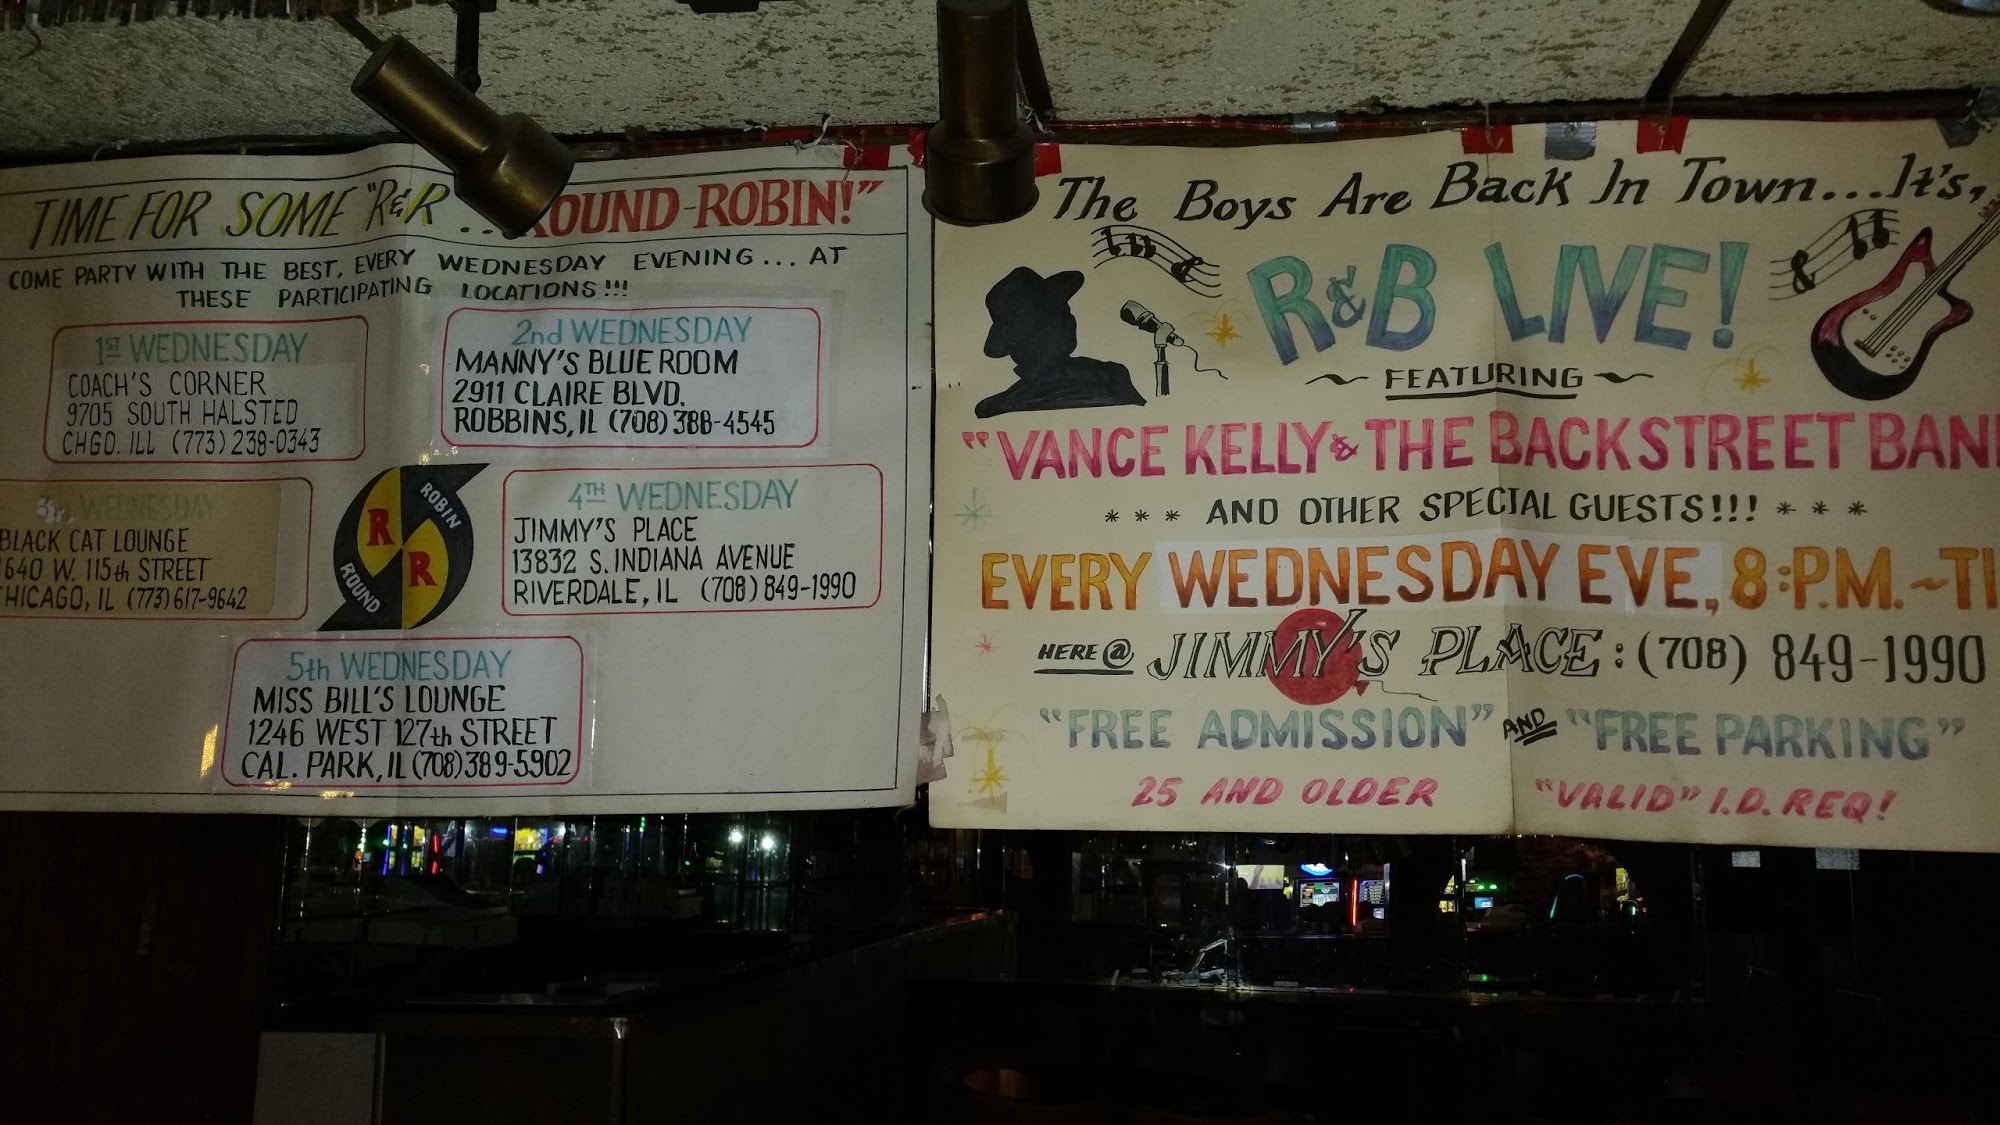 TIME FOR SOME "R&R... ROUND-ROBIN!"
COME PARTY WITH THE BEST, EVERY WEDNESDAY EVENING... AT
THESE PARTICIPATING LOCATIONS!!!
1ST WEDNESDAY
COACH'S CORNER
9705 SOUTH HALSTED
CHGO. ILL (773) 238-0343
2nd WEDNESDAY
MANNY'S BLUE ROOM
2911 CLAIRE BLVD.
ROBBINS, IL (708) 388-4545
3rd WEDNESDAY
BLACK CAT LOUNGE
1640 W. 115th STREET
CHICAGO, IL (773) 617-9642
ROBIN
R
R
ROUND
4TH WEDNESDAY
JIMMY'S PLACE
13832 S. INDIANA AVENUE
RIVERDALE, IL (708) 849-1990
5th WEDNESDAY
MISS BILL'S LOUNGE
1246 WEST 127th STREET
CAL. PARK, IL (708) 389-5902
The Boys Are Back In Town...It's,
R&B LIVE!
~ FEATURING ~
"VANCE KELLY & THE BACKSTREET BAN
* * * AND OTHER SPECIAL GUESTS!!! * * *
EVERY WEDNESDAY EVE, 8:P.M.~TI
HERE @ JIMMY'S PLACE: (708) 849-1990
"FREE ADMISSION" AND "FREE PARKING"
25 AND OLDER "VALID" I.D. REQ!